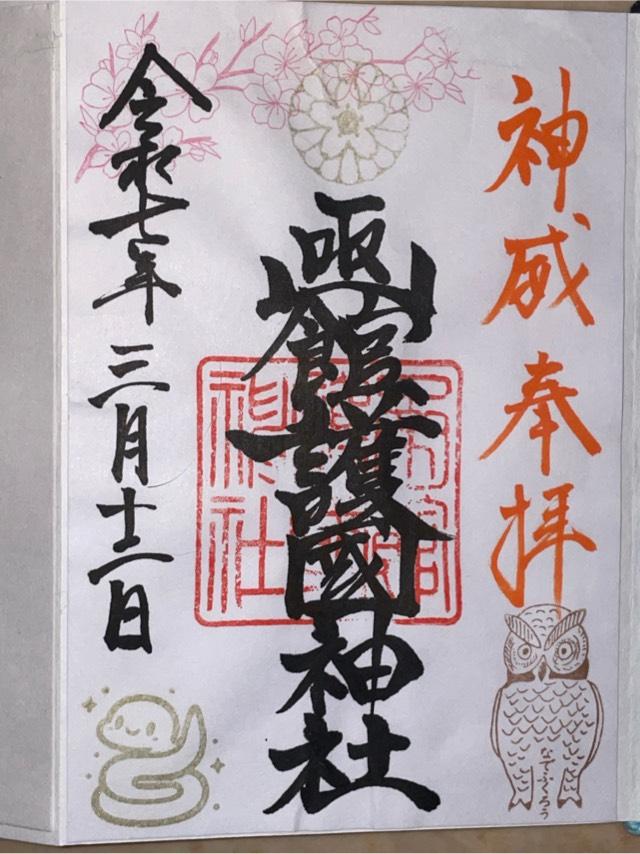 神威奉拝
凾館護國神社
令和七年三月十二日
なでふくろう